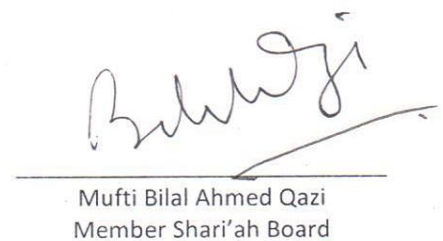 Mufti Bilal Ahmed Qazi
Member Shari'ah Board